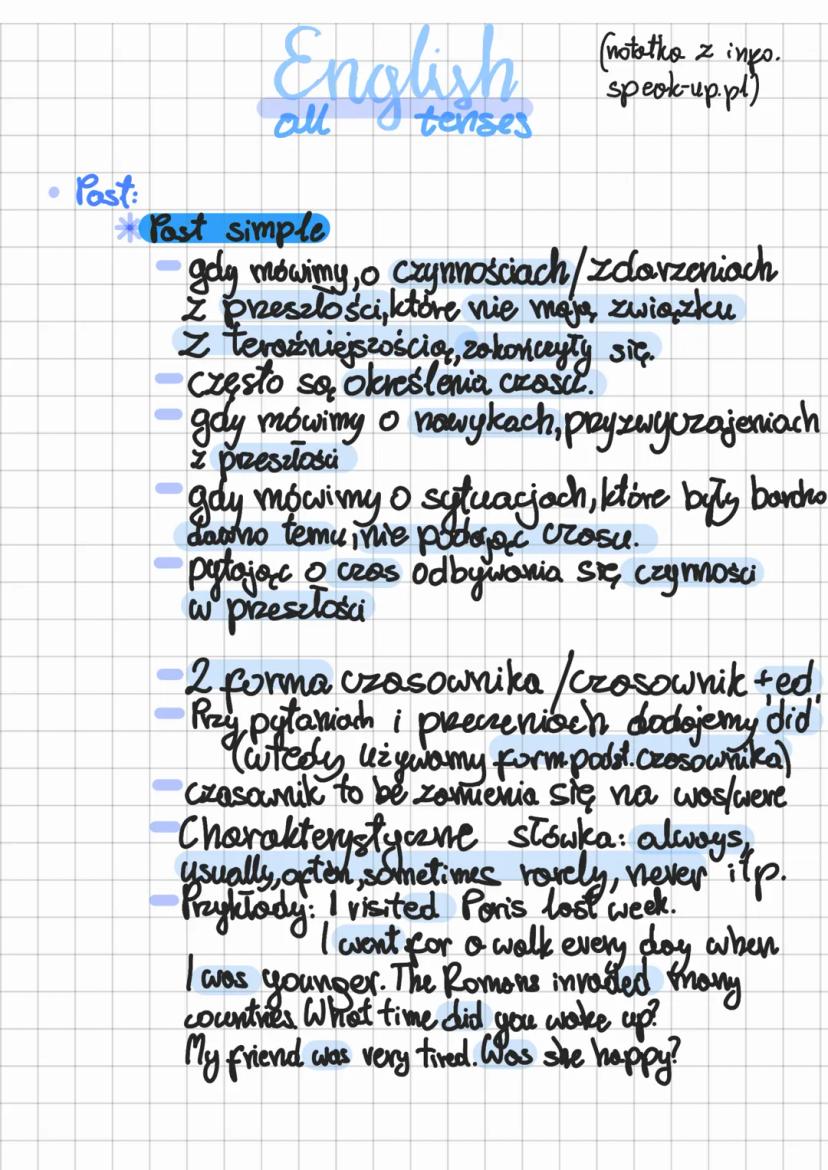 English
all tenses
(notatka z info.
speak-up.pl)
Past:
Past simple
gdy mówimy, o czynnościach/zdarzeniach
z przeszłości, które nie mają związku
z teraźniejszością, zakończyły się.
często są określenia czasu.
gdy mówimy o nawykach, pryzwyczajeniach
z przeszłości
gdy mówimy o sytuacjach, które były bardzo
dawno temu, nie podając czasu.
pytając o czas odbywania się czynności
w przeszłości
2 forma czasownika /czasownik +ed
Przy pytaniach i przeczeniach dodajemy 'did'
(wtedy używamy form. podst. czasownika)
czasownik to be zamienia się na was/were
Charakterystyczne słówka: always,
usually, often, sometimes rarely, never itp.
Przykłady: I visited Paris last week.
I went for a walk every day when
I was younger. The Romans invaded many
countries. What time did you wake up?
My friend was very tired. Was she happy?